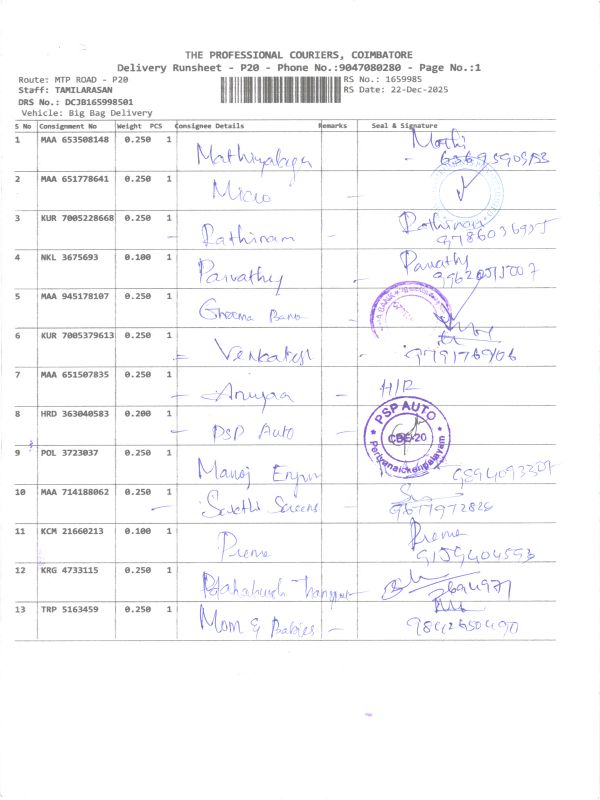 THE PROFESSIONAL COURIERS, COIMBATORE
Delivery Runsheet - P20 - Phone No.:9047080280 - Page No.:1
Route: MTP ROAD - P20 RS No.: 1659985
Staff: TAMILARASAN RS Date: 22-Dec-2025
DRS No.: DCJB165998501
Vehicle: Big Bag Delivery
S No Consignment No Weight PCS Consignee Details Remarks Seal & Signature
1 MAA 653508148 0.250 1 Mathiyalagan Mathi
2 MAA 651778641 0.250 1 Micro
3 KUR 7005228668 0.250 1 Rathinam Rathinam
4 NKL 3675693 0.100 1 Parvathy Parvathy
5 MAA 945178107 0.250 1 Bank
6 KUR 7005379613 0.250 1 Venkatesh
9791769406
7 MAA 651507835 0.250 1 H/R
8 HRD 363040583 0.200 1 PSP Auto PSP AUTO CBE-20 Periyanaickenpalayam
9 POL 3723037 0.250 1 Manoj
10 MAA 714188062 0.250 1 Swathi Screens
9677972826
11 KCM 21660213 0.100 1 Prema Prema
9159404553
12 KRG 4733115 0.250 1
13 TRP 5163459 0.250 1 Mom & Babies
9842650490